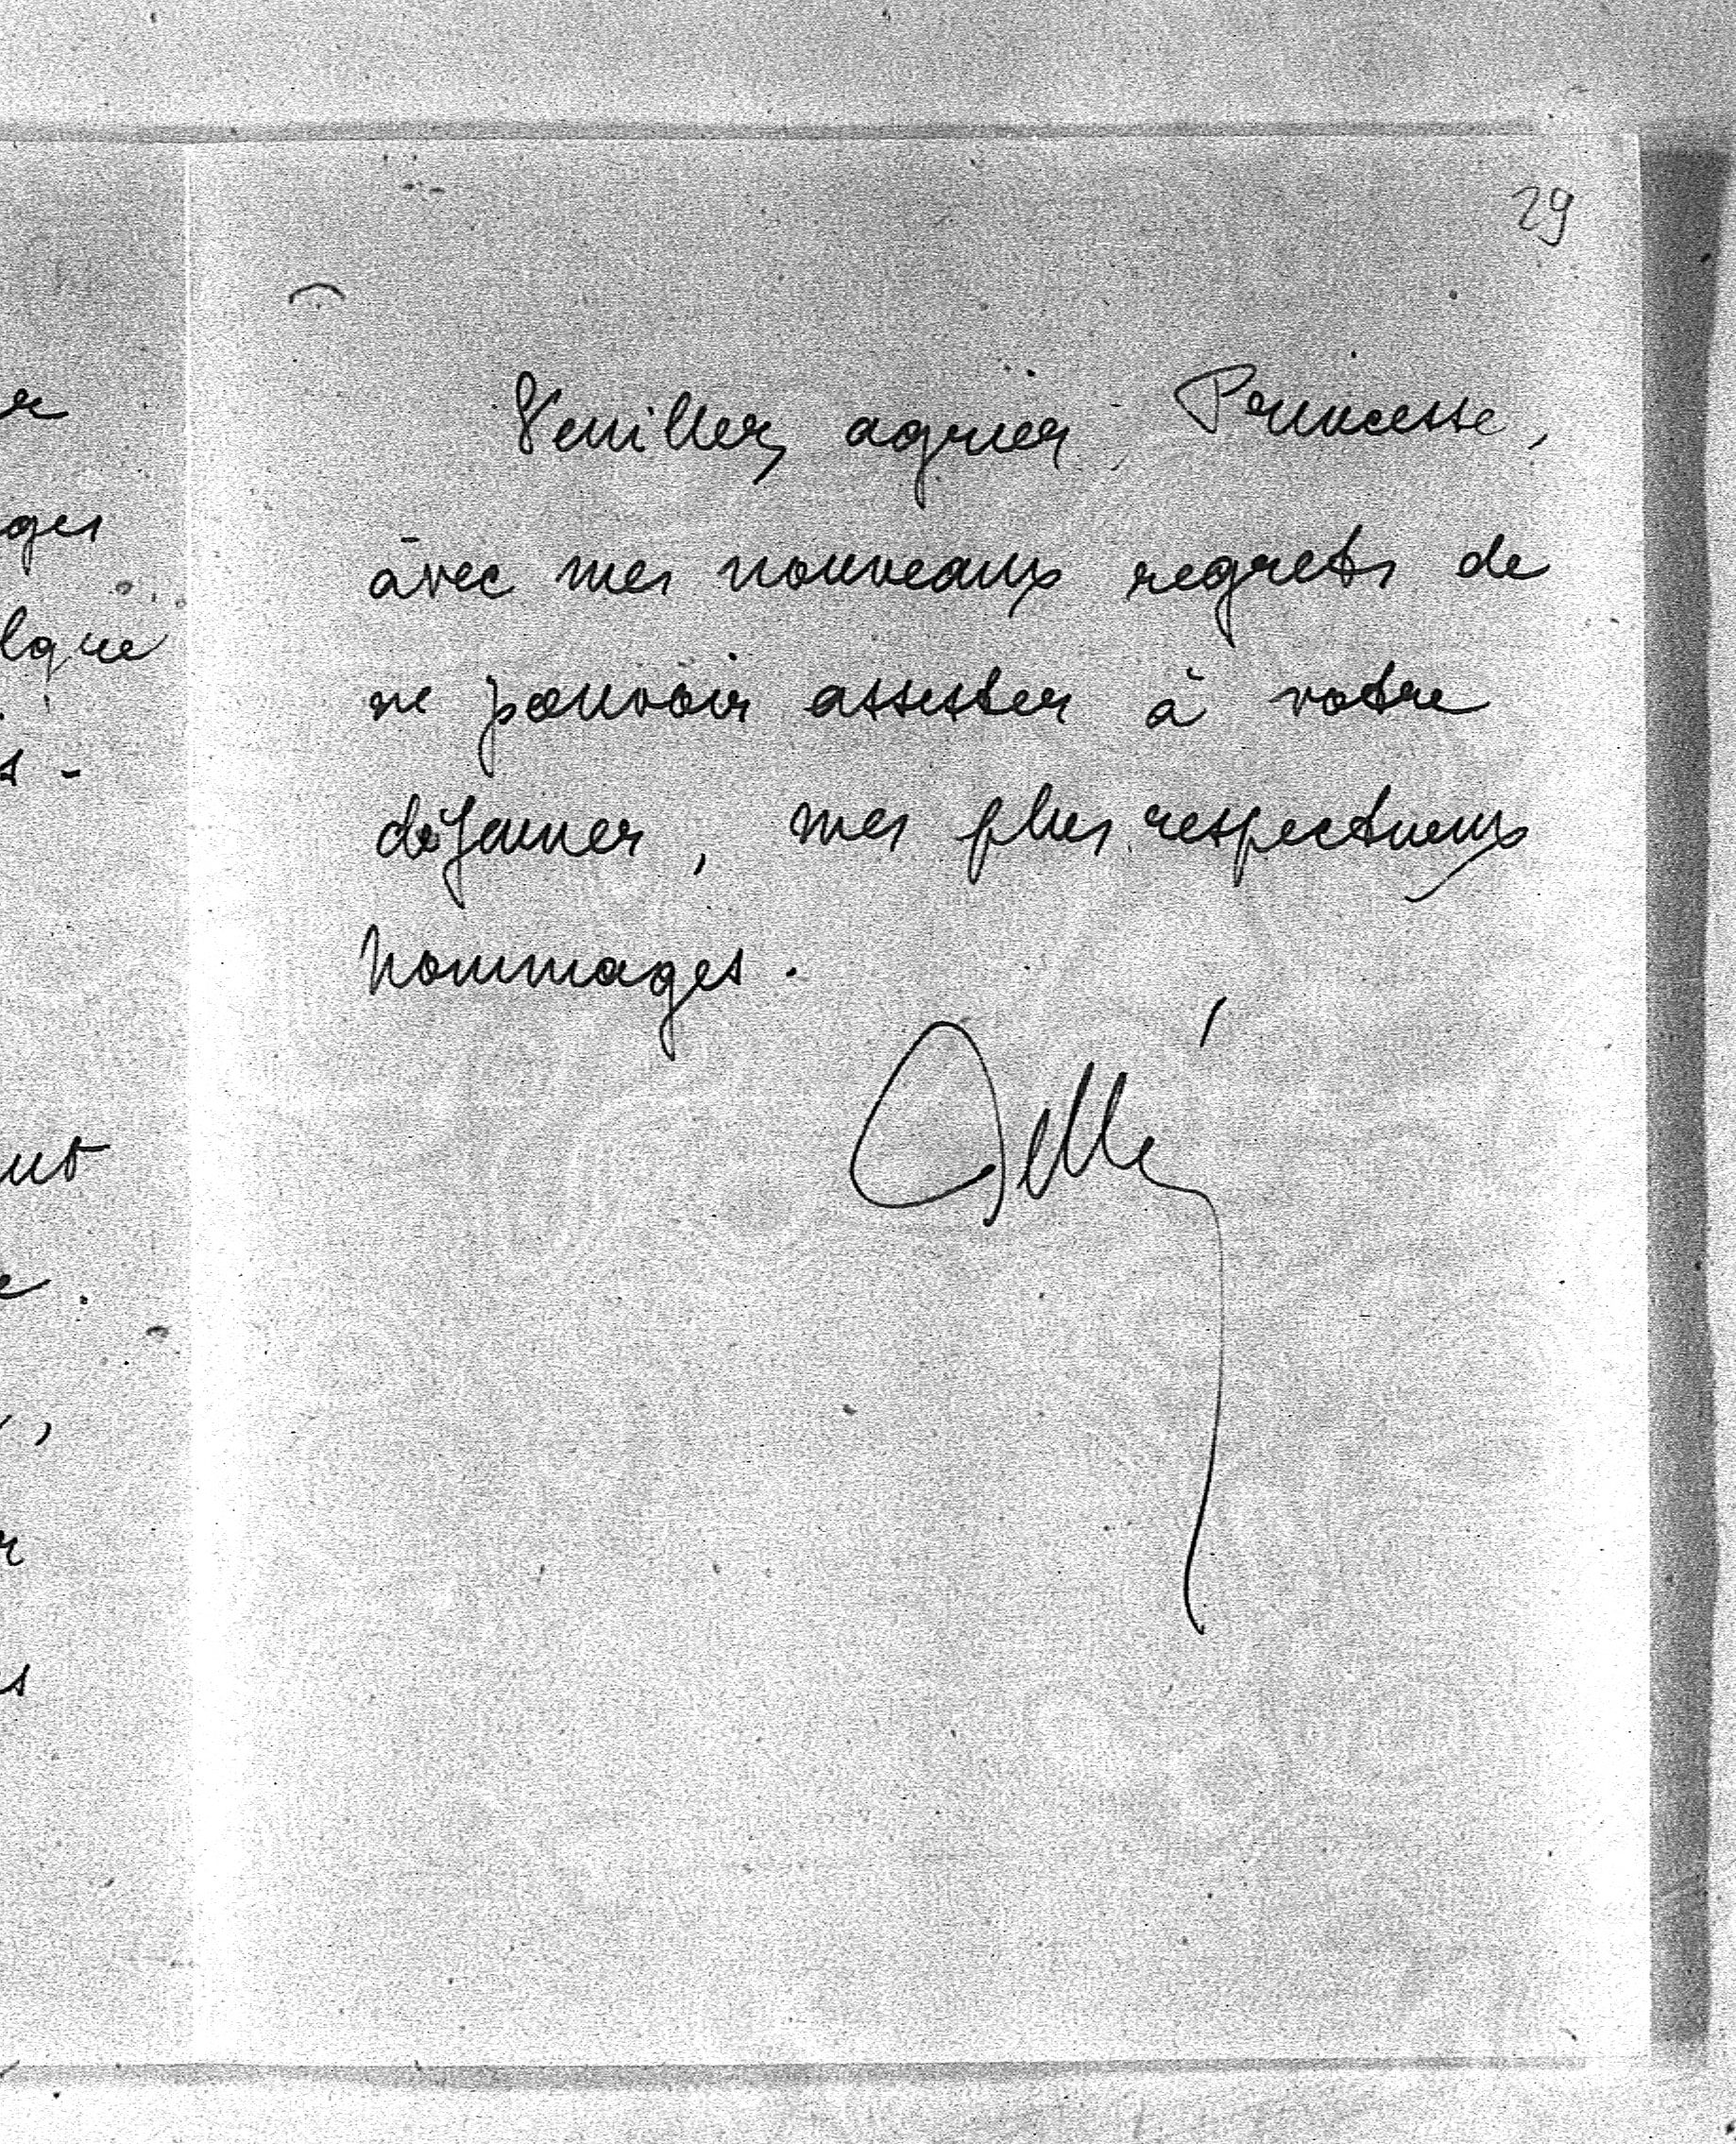 29
Veuillez agréer, Princesse,
avec mes nouveaux regrets de
ne pouvoir assister à votre
déjeuner, mes plus respectueux
hommages.
ges
ut